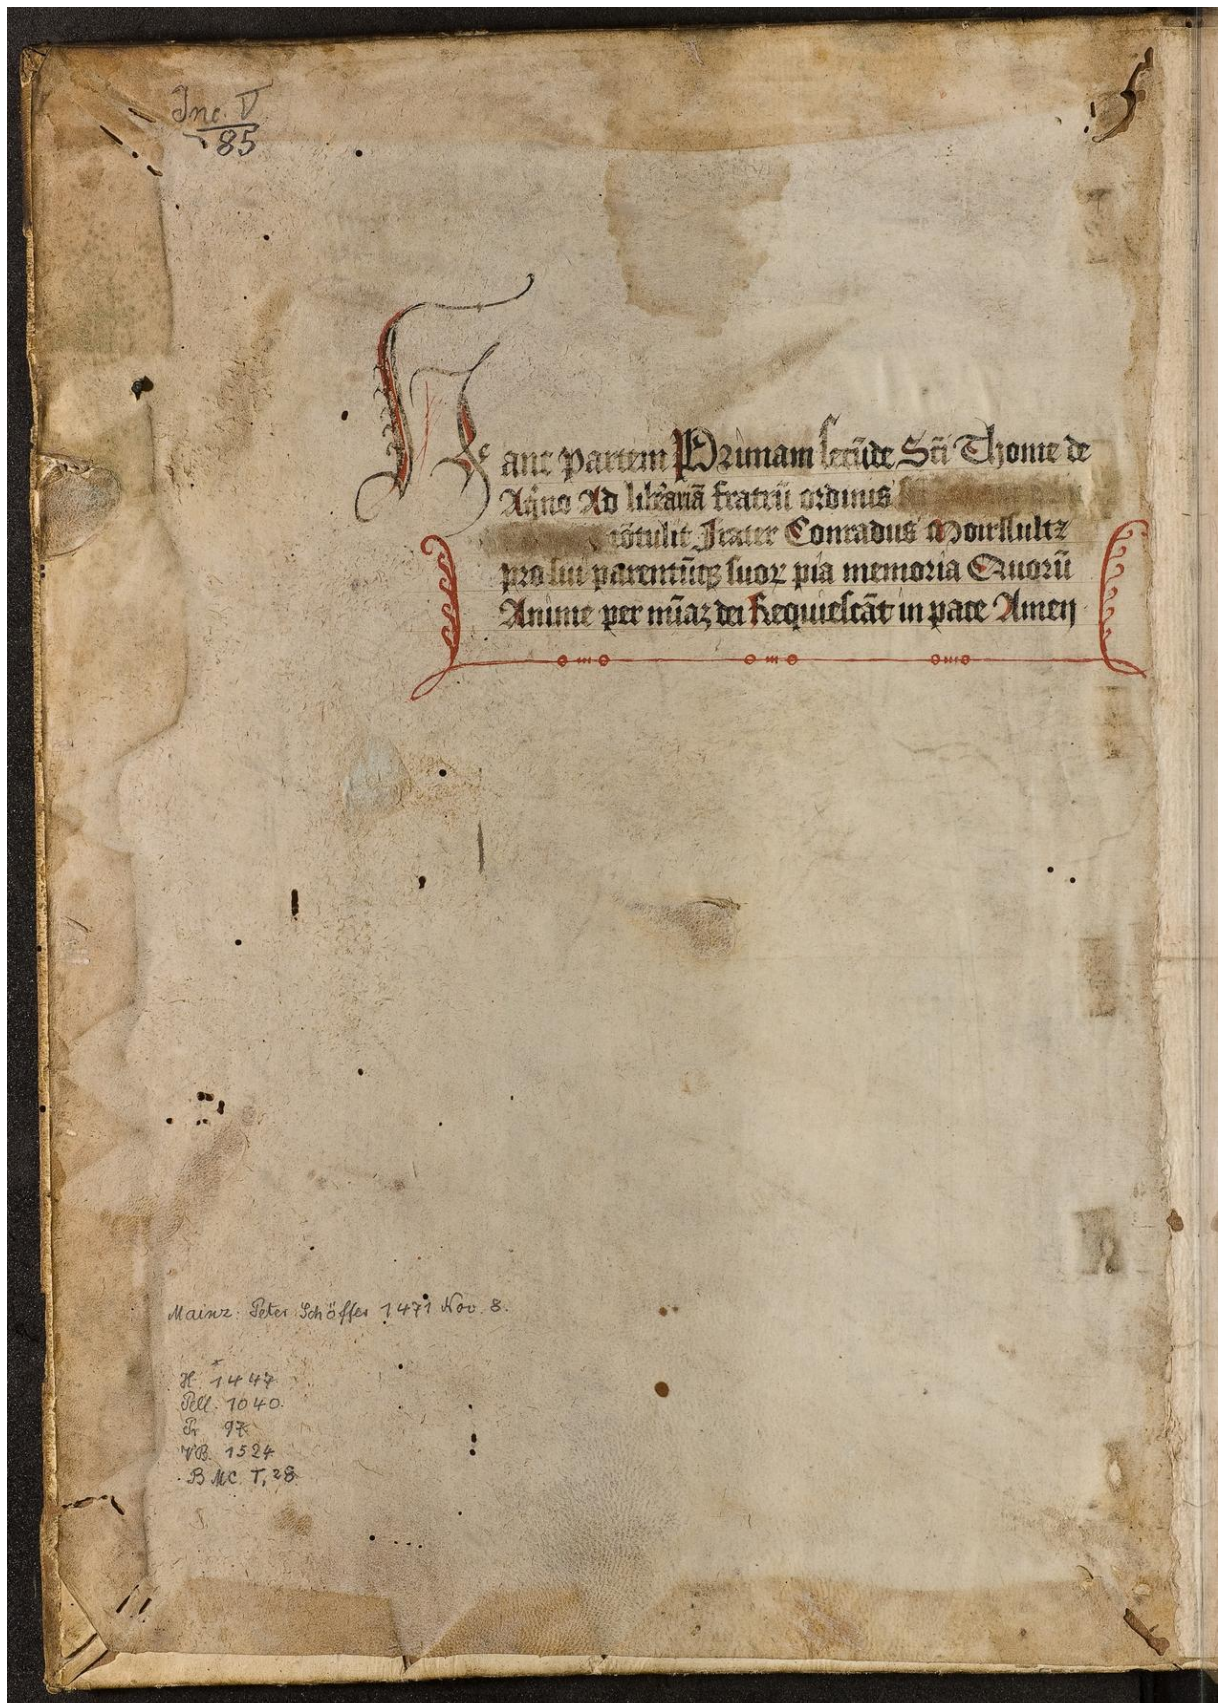 Inc. V
85
Hanc partem Primam secūde Scī Thome de
Aqīno Ad librariā fratrū ordinis
cōtulit Frater Conradus
pro sui parentūqꝫ suoꝝ pia memoria Quorū
Anime per mīaꝫ dei Requiescāt in pace Amen
Mainz: Peter Schöffer 1471 Nov. 8.
H 1447
Pell. 1040.
Pr 97
VB. 1524
BMC. I, 28